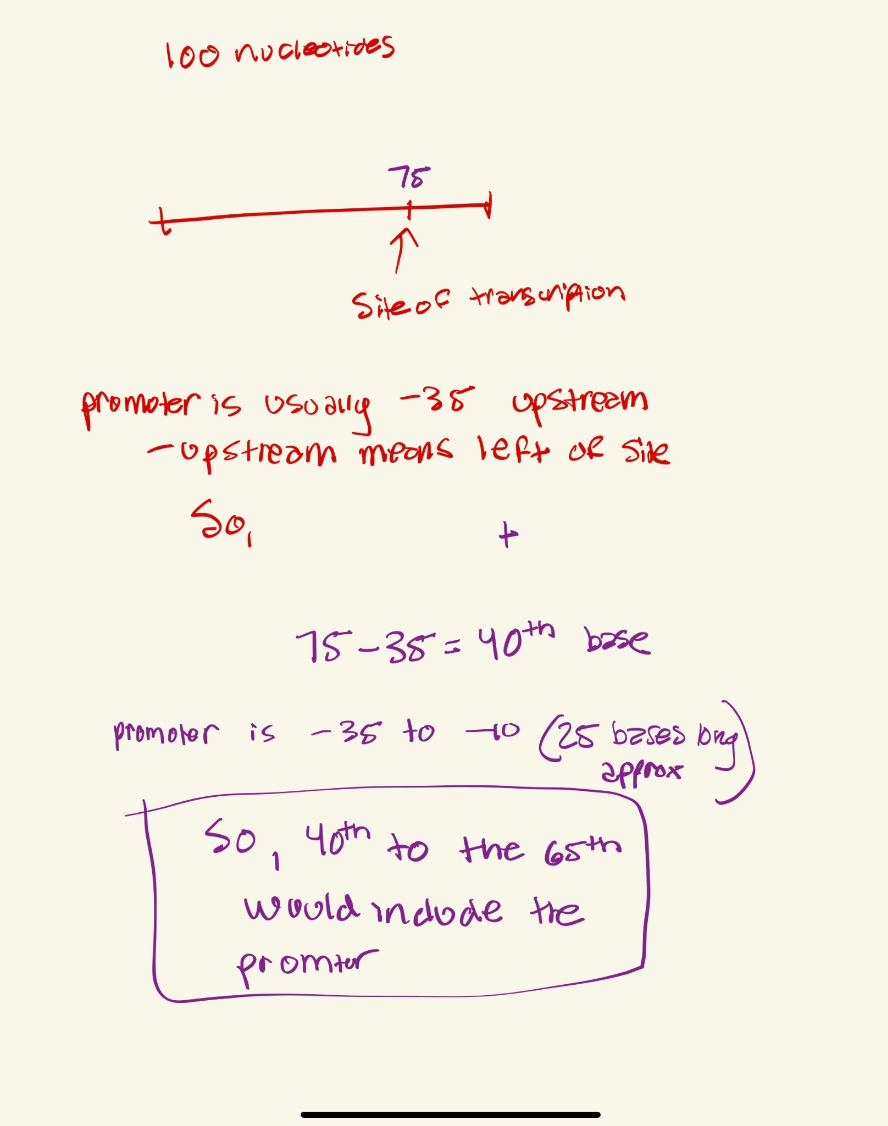 100 nucleotides
75
Site of transcription
promoter is usually -35 upstream
- upstream means left of site
So,
+
75 - 35 = 40th base
promoter is -35 to -10 (25 bases long
approx)
So, 40th to the 65th
would include the
promter